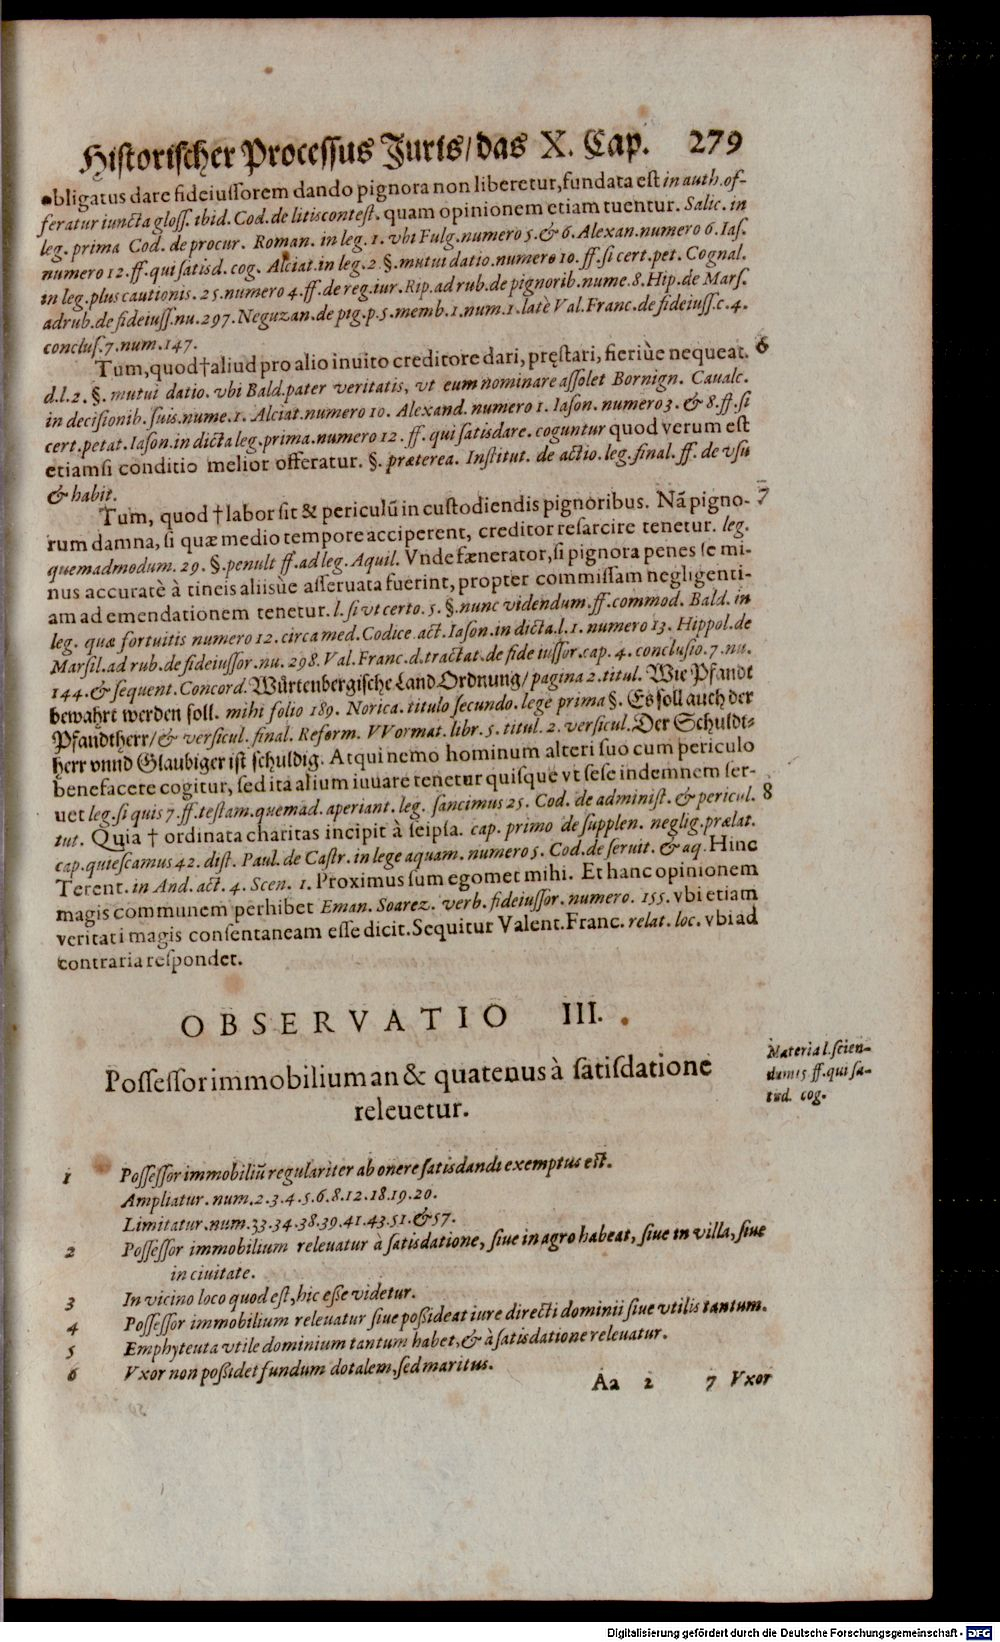 Historischer Processus Juris/das X. Cap. 279
obligatus dare fideiussorem dando pignora non liberetur, fundata est in auth. of-
feratur iuncta gloss. ibid. Cod. de litis contest. quam opinionem etiam tuentur. Salic. in
leg. prima Cod. de procur. Roman. in leg. 1. vbi Fulg. numero 5. & 6. Alexan. numero 6. Ias.
numero 12. ff. qui satisd. cog. Alciat. in leg. 2. §. mutui datio. numero 10. ff. si cert. pet. Cognal.
in leg. plus cautionis. 25. numero 4. ff. de reg. iur. Rip. ad rub. de pignorib. nume. 8. Hip. de Mars.
ad rub. de fideiuss. nu. 297. Neguzan. de pig. p. 5. memb. 1. num. 1. latè Val. Franc. de fideiuss. c. 4.
conclus. 7. num. 147.
Tum, quod † aliud pro alio inuito creditore dari, pręstari, fieriùe nequeat. 6
d. l. 2. §. mutui datio. vbi Bald. pater veritatis, vt eum nominare assolet Bornign. Caualc.
in decisionib. suis. nume. 1. Alciat. numero 10. Alexand. numero 1. Iason. numero 3. & 8. ff. si
cert. petat. Iason. in dicta leg. prima. numero 12. ff. qui satisdare. coguntur quod verum est
etiamsi conditio melior offeratur. §. præterea. Institut. de actio. leg. final. ff. de vsu
& habit.
Tum, quod † labor sit & periculũ in custodiendis pignoribus. Nã pigno- 7
rum damna, si quæ medio tempore acciperent, creditor resarcire tenetur. leg.
quemadmodum. 29. §. penult ff. ad leg. Aquil. Vnde fænerator, si pignora penes se mi-
nus accuratè à tineis aliisùe asseruata fuerint, propter commissam negligenti-
am ad emendationem tenetur. l. si vt certo. 5. §. nunc videndum. ff. commod. Bald. in
leg. quæ fortuitis numero 12. circa med. Codice act. Iason. in dicta. l. 1. numero 13. Hippol. de
Marsil. ad rub. de fideiussor. nu. 298. Val. Franc. d. tractat. de fideiussor. cap. 4. conclusio. 7. nu.
144. & sequent. Concord. Würtenbergische Land Ordnung/ pagina 2. titul. Wie Pfandt
bewahrt werden soll. mihi folio 189. Norica. titulo secundo. lege prima §. Es soll auch der
Pfandtherr/ & versicul. final. Reform. VVormat. libr. 5. titul. 2. versicul. Der Schuldt-
herr vnnd Glaubiger ist schuldig. Atqui nemo hominum alteri suo cum periculo
benefacete cogitur, sed ita alium iuuare tenetur quisque vt sese indemnem ser-
uet leg. si quis 7. ff. testam. quemad. aperiant. leg. sancimus 25. Cod. de administ. & pericul. 8
tut. Quia † ordinata charitas incipit à seipsa. cap. primo de supplen. neglig. prælat.
cap. quiescamus 42. dist. Paul. de Castr. in lege aquam. numero 5. Cod. de seruit. & aq. Hinc
Terent. in And. act. 4. Scen. 1. Proximus sum egomet mihi. Et hanc opinionem
magis communem perhibet Eman. Soarez. verb. fideiussor. numero. 155. vbi etiam
veritati magis consentaneam esse dicit. Sequitur Valent. Franc. relat. loc. vbi ad
contraria respondet.
OBSERVATIO III.
Possessor immobilium an & quatenus à satisdatione
releuetur.
Materia l. scien-
dum 15 ff. qui sa-
tisd. cog.
1 Possessor immobiliũ regulariter ab onere satisdandi exemptus est.
Ampliatur. num. 2. 3. 4. 5. 6. 8. 12. 18. 19. 20.
Limitatur. num. 33. 34. 38. 39. 41. 43. 51. & 57.
2 Possessor immobilium releuatur à satisdatione, siue in agro habeat, siue in villa, siue
in ciuitate.
3 In vicino loco quod est, hic esse videtur.
4 Possessor immobilium releuatur siue possideat iure directi dominii siue vtilis tantum.
5 Emphyteuta vtile dominium tantum habet, & à satisdatione releuatur.
6 Vxor non possidet fundum dotalem, sed maritus.
Aa 2 7 Vxor
Digitalisierung gefördert durch die Deutsche Forschungsgemeinschaft - DFG